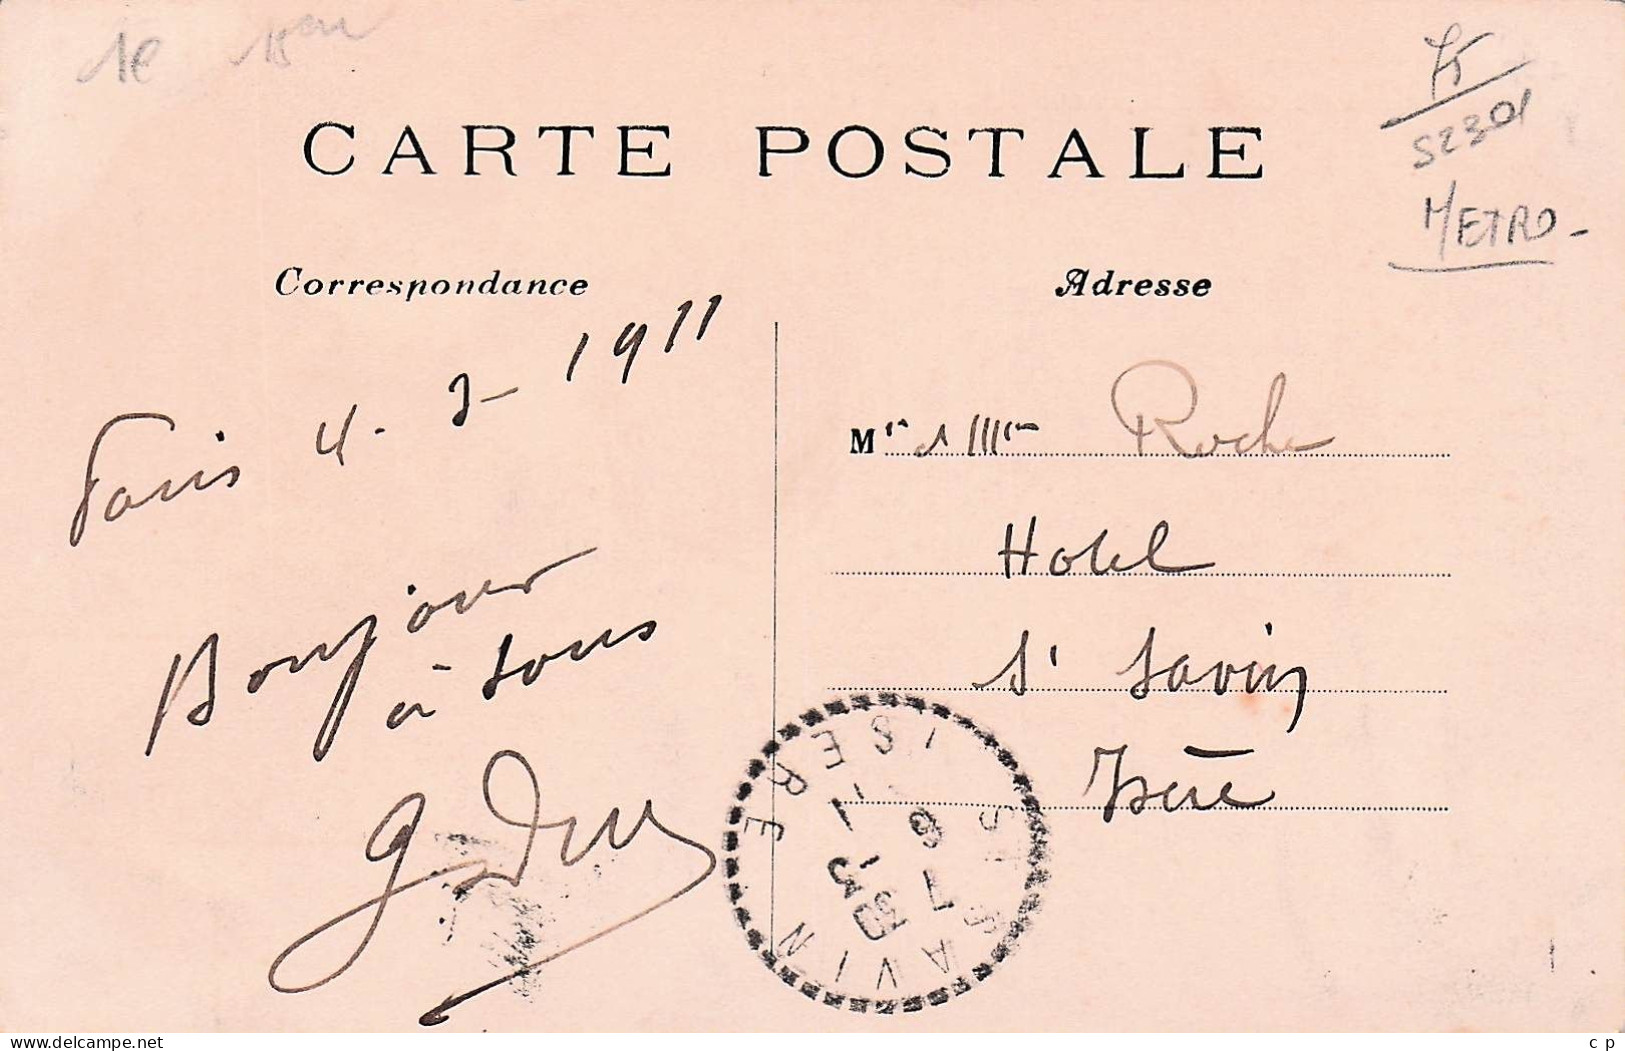 1e
75
52301
METRO -
CARTE POSTALE
Correspondance
Adresse
Paris 4. 3 - 1911
Bonjour
à tous
Mr & Mme Roche
Hotel
St Savin
Isère
ST SAVIN
ISERE
www.delcampe.net
c p